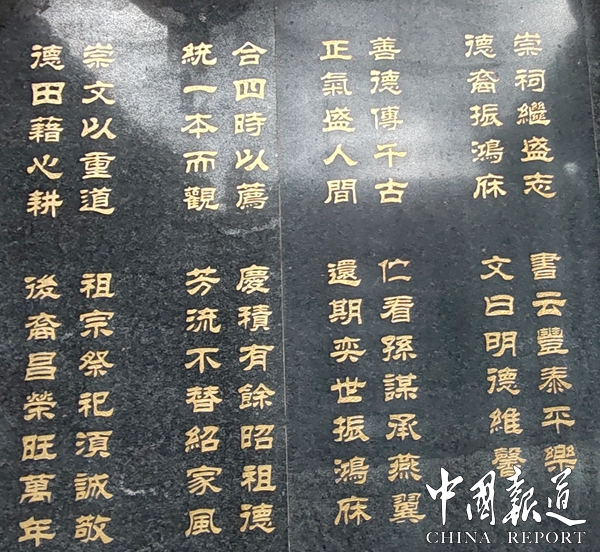 崇祠繼盛志
德裔振鴻庥
善德傳千古
正氣盛人間
合四時以薦
統一本而觀
崇文以重道
德田藉心耕
書云豐泰平樂
文曰明德維馨
伫看孫謀承燕翼
還期奕世振鴻庥
慶積有餘昭祖德
芳流不替紹家風
祖宗祭祀須誠敬
後裔昌榮旺萬年
中國報道
CHINA REPORT